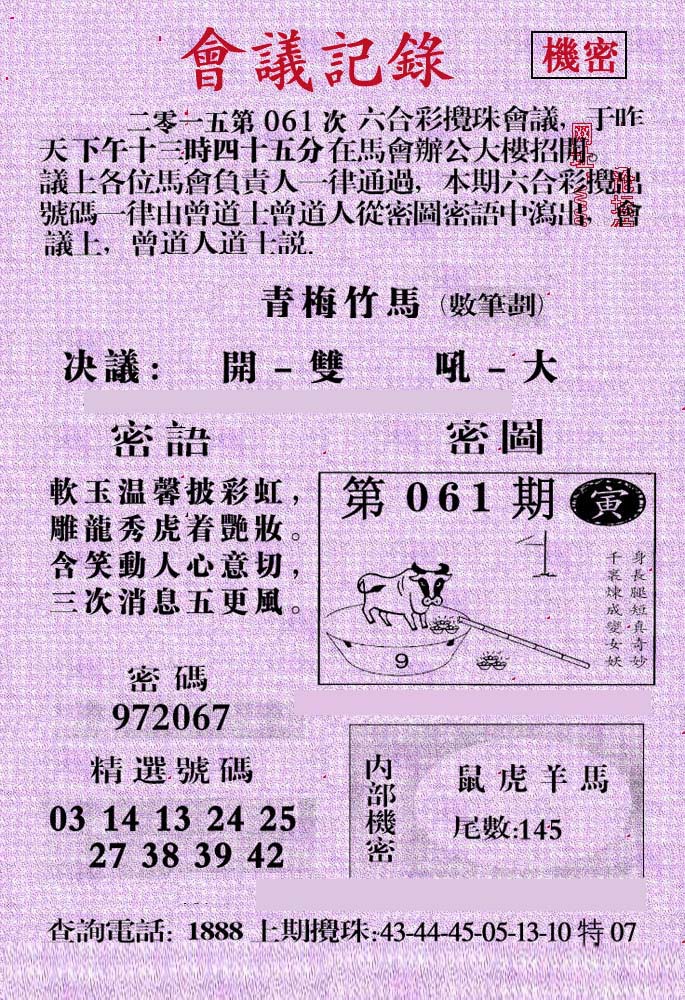 會議記錄
機密
二零一五第061次 六合彩攪珠會議，于昨
天下午十三時四十五分在馬會辦公大樓招開。
議上各位馬會負責人一律通過，本期六合彩攪出
號碼一律由曾道士曾道人從密圖密語中瀉出，會
議上，曾道人道士説.
青梅竹馬（數筆劃）
决議： 開－雙 吼－大
密語
軟玉温馨披彩虹，
雕龍秀虎着艷妝。
含笑動人心意切，
三次消息五更風。
密圖
第061期 寅
身長腿短真奇妙
千裏煉成變女妖
9
密碼
972067
精選號碼
03 14 13 24 25
27 38 39 42
内部機密
鼠虎羊馬
尾數:145
查詢電話: 1888 上期攪珠:43-44-45-05-13-10 特 07